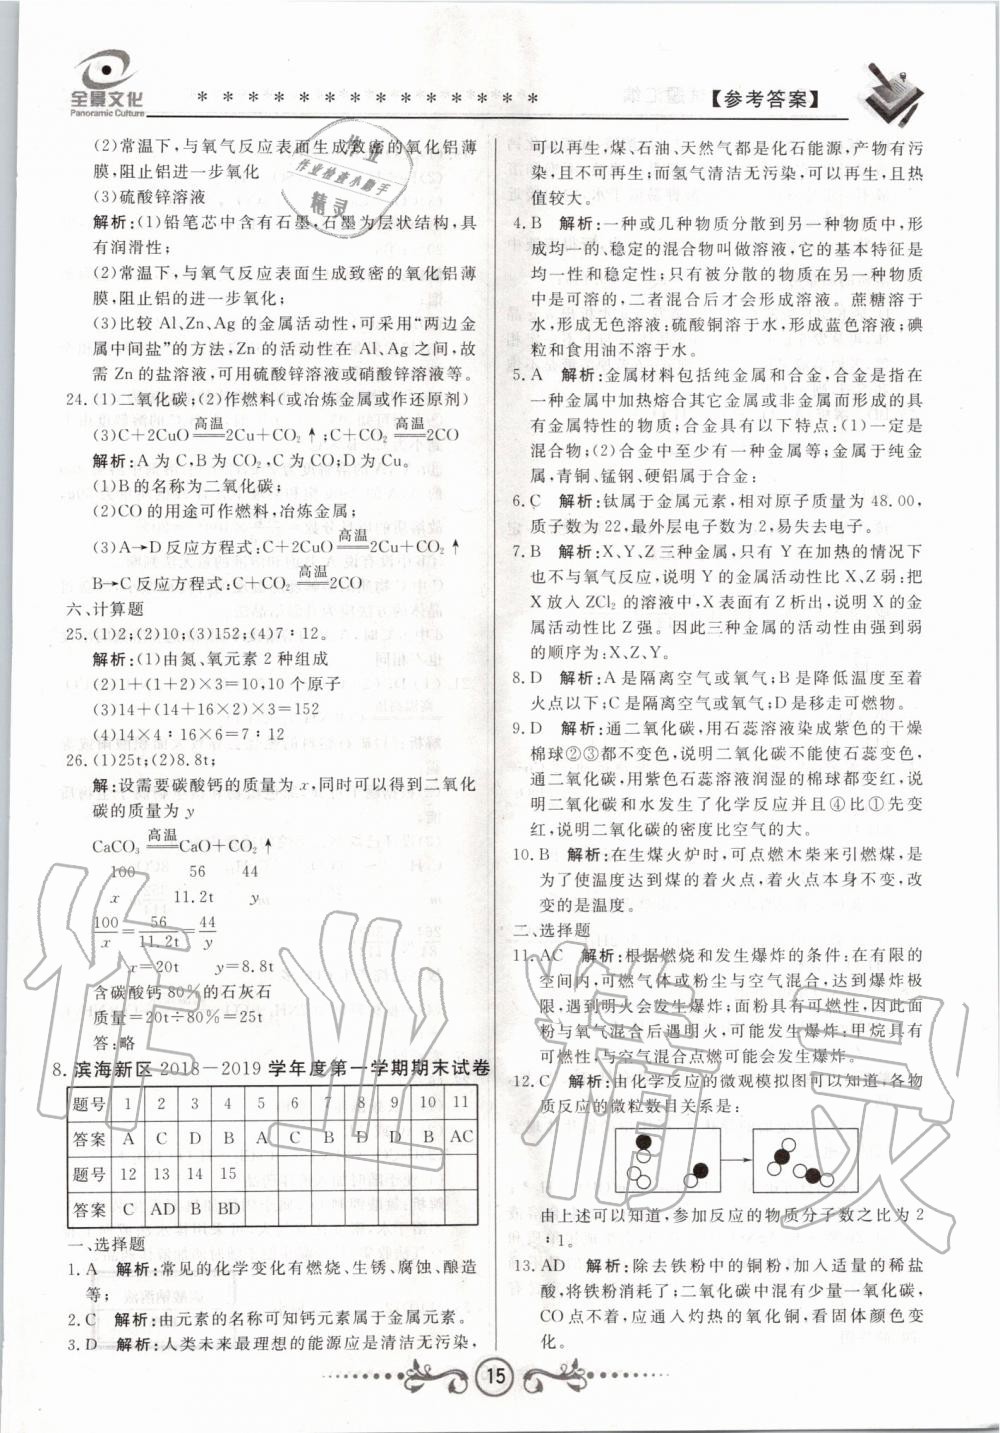 全景文化
Panoramic Culture
* * * * * * * * * * * * * *
【参考答案】
(2)常温下,与氧气反应表面生成致密的氧化铝薄
膜,阻止铝进一步氧化
(3)硫酸锌溶液
解析:(1)铅笔芯中含有石墨,石墨为层状结构,具
有润滑性;
(2)常温下,与氧气反应表面生成致密的氧化铝薄
膜,阻止铝的进一步氧化;
(3)比较 Al、Zn、Ag 的金属活动性,可采用“两边金
属中间盐”的方法,Zn 的活动性在 Al、Ag 之间,故
需 Zn 的盐溶液,可用硫酸锌溶液或硝酸锌溶液等。
24.(1)二氧化碳;(2)作燃料(或冶炼金属或作还原剂)
(3)C+2CuO高温══2Cu+CO₂↑;C+CO₂高温══2CO
解析:A 为 C,B 为 CO₂,C 为 CO;D 为 Cu。
(1)B 的名称为二氧化碳;
(2)CO 的用途可作燃料,冶炼金属;
(3)A→D 反应方程式:C+2CuO高温══2Cu+CO₂↑
B→C 反应方程式:C+CO₂高温══2CO
六、计算题
25.(1)2;(2)10;(3)152;(4)7∶12。
解析:(1)由氮、氧元素 2 种组成
(2)1+(1+2)×3=10,10 个原子
(3)14+(14+16×2)×3=152
(4)14×(1+3)∶16×2×3=7∶12
26.(1)25t;(2)8.8t;
解:设需要碳酸钙的质量为 x,同时可以得到二氧化
碳的质量为 y
CaCO₃高温══CaO+CO₂↑
100 56 44
x 11.2t y
100/x=56/11.2t=44/y
x=20t y=8.8t
含碳酸钙 80%的石灰石
质量=20t÷80%=25t
答:略
8. 滨海新区 2018—2019 学年度第一学期期末试卷
题号 1 2 3 4 5 6 7 8 9 10 11
答案 A C D B A C B D D B AC
题号 12 13 14 15
答案 C AD B BD
一、选择题
1.A 解析:常见的化学变化有燃烧、生锈、腐蚀、酿造
等;
2.C 解析:由元素的名称可知钙元素属于金属元素。
3.D 解析:人类未来最理想的能源应是清洁无污染,
可以再生,煤、石油、天然气都是化石能源,产物有污
染,且不可再生;而氢气清洁无污染,可以再生,且热
值较大。
4.B 解析:一种或几种物质分散到另一种物质中,形
成均一的、稳定的混合物叫做溶液,它的基本特征是
均一性和稳定性;只有被分散的物质在另一种物质
中是可溶的,二者混合后才会形成溶液。蔗糖溶于
水,形成无色溶液;硫酸铜溶于水,形成蓝色溶液;碘
粒和食用油不溶于水。
5.A 解析:金属材料包括纯金属和合金,合金是指在
一种金属中加热熔合其它金属或非金属而形成的具
有金属特性的物质;合金具有以下特点:(1)一定是
混合物;(2)合金中至少有一种金属等;金属钛是纯金
属,青铜、锰钢、硬铝属于合金;
6.C 解析:钛属于金属元素,相对原子质量为 48.00,
质子数为 22,最外层电子数为 2,易失去电子。
7.B 解析:X、Y、Z 三种金属,只有 Y 在加热的情况下
也不与氧气反应,说明 Y 的金属活动性比 X、Z弱;把
X 放入 ZCl₂ 的溶液中,X 表面有 Z 析出,说明 X 的金
属活动性比 Z 强。因此三种金属的活动性由强到弱
的顺序为:X、Z、Y。
8.D 解析:A 是隔离空气或氧气;B 是降低温度至着
火点以下;C 是隔离空气或氧气;D 是移走可燃物。
9.D 解析:通二氧化碳,用石蕊溶液染成紫色的干燥
棉球②③都不变色,说明二氧化碳不能使石蕊变色,
通二氧化碳,用紫色石蕊溶液润湿的棉球都变红,说
明二氧化碳和水发生了化学反应并且④比①先变
红,说明二氧化碳的密度比空气的大。
10.B 解析:在生煤火炉时,可点燃木柴来引燃煤,是
为了使温度达到煤的着火点,着火点本身不变,改
变的是温度。
二、选择题
11.AC 解析:根据燃烧和发生爆炸的条件:在有限的
空间内,可燃气体或粉尘与空气混合,达到爆炸极
限,遇到明火会发生爆炸;面粉具有可燃性,因此面
粉与氧气混合后遇明火,可能发生爆炸;甲烷具有可
燃性,与空气混合点燃可能会发生爆炸。
12.C 解析:由化学反应的微观模拟图可以知道,各物
质反应的微粒数目关系是:
由上述可以知道,参加反应的物质分子数之比为 2
∶1。
13.AD 解析:除去铁粉中的铜粉,加入适量的稀盐
酸,将铁粉消耗了;二氧化碳中混有少量一氧化碳,
CO点不着,应通入灼热的氧化铜,看固体颜色变
化。
15
作业
作业检查小助手
精灵
作业精灵